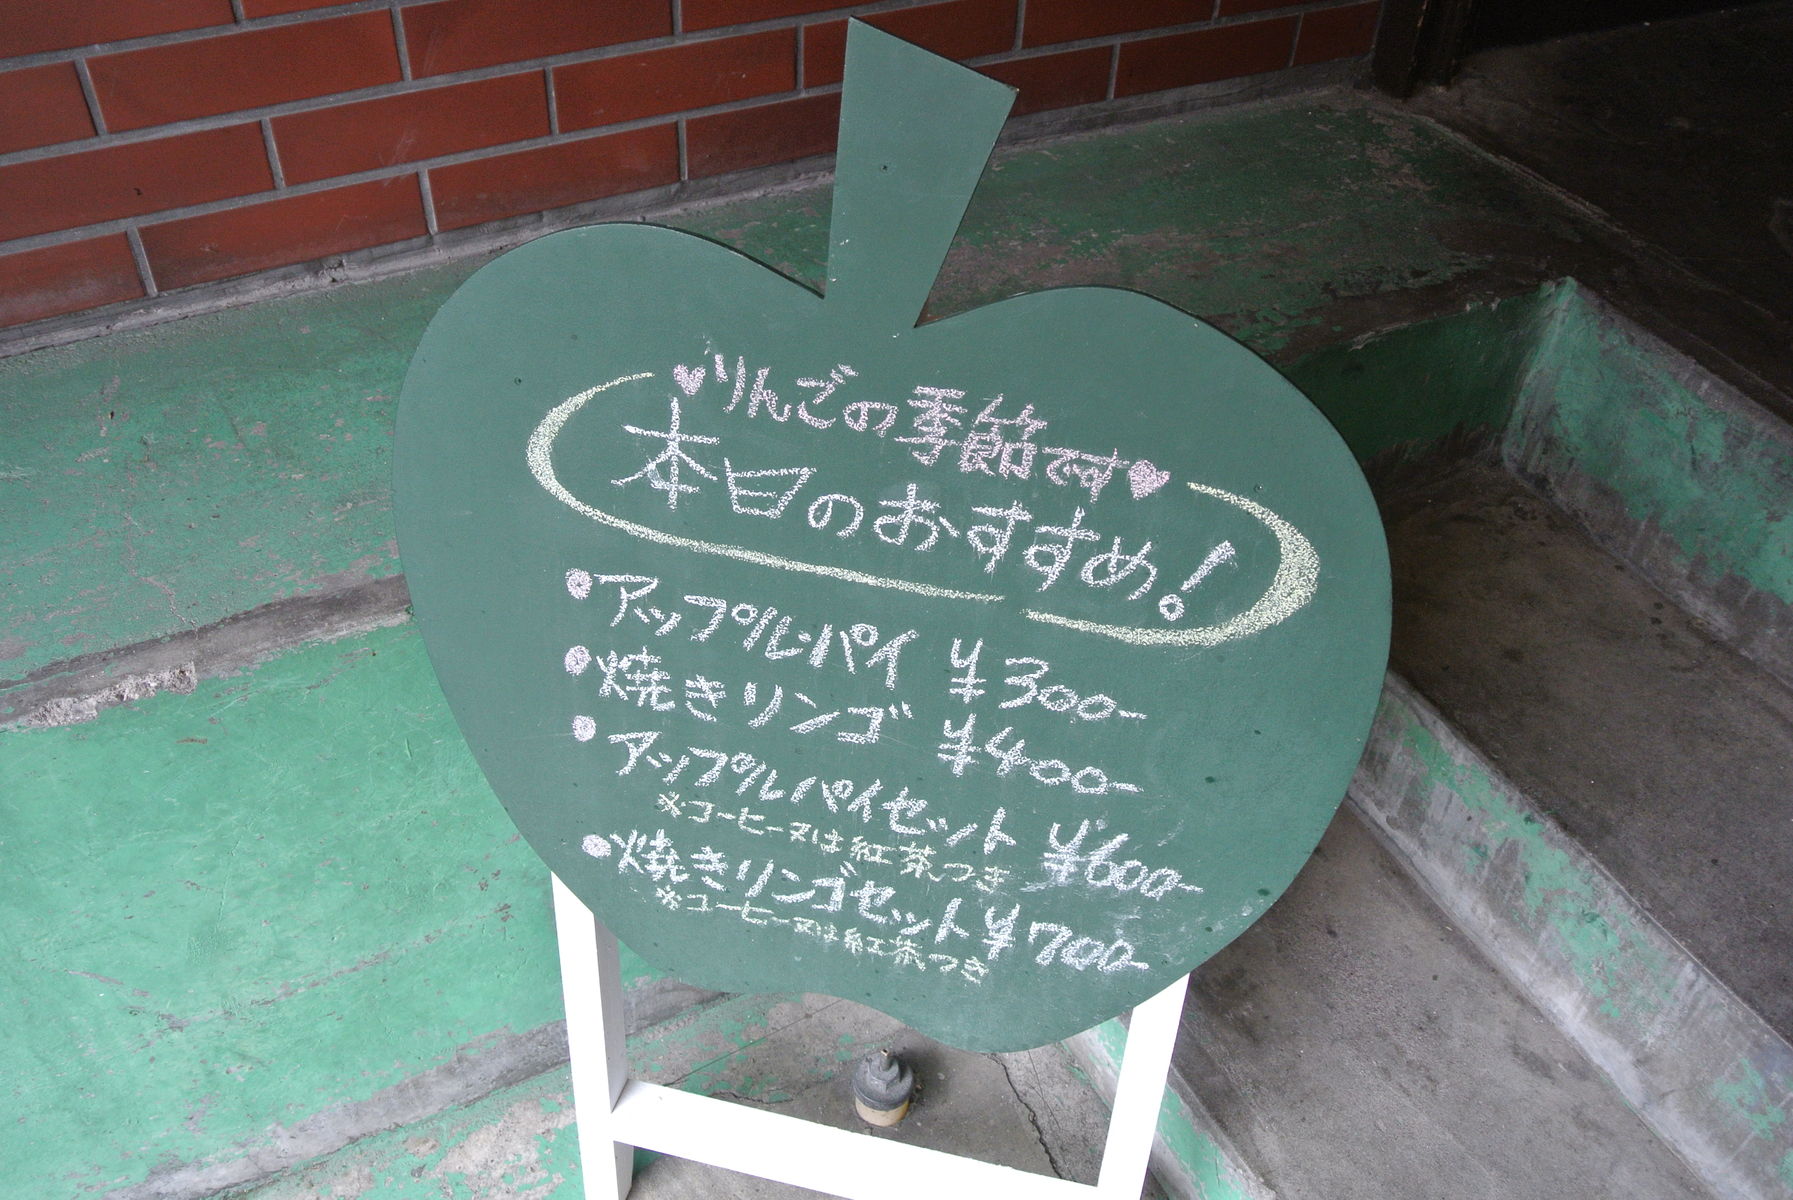 ♥りんごの季節です♥
本日のおすすめ!
●アップルパイ ¥300-
●焼きリンゴ ¥400-
●アップルパイセット ¥600-
※コーヒー又は紅茶つき
●焼きリンゴセット ¥700-
※コーヒー又は紅茶つき